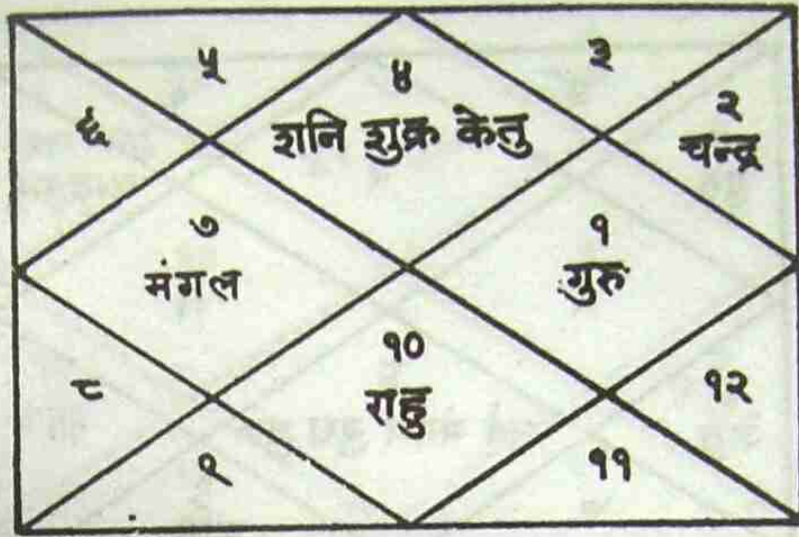 ५
४
३
६
शनि शुक्र केतु
२
चन्द्र
७
मंगल
१
गुरु
१०
राहु
८
१२
९
११